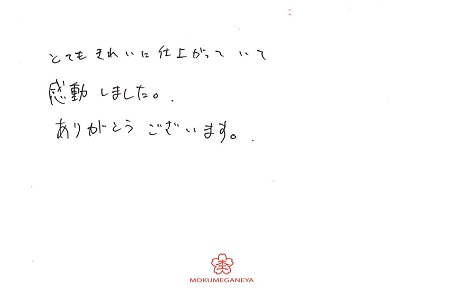 とてもきれいに仕上がっていて
感動しました。
ありがとうございます。
MOKUMEGANEYA